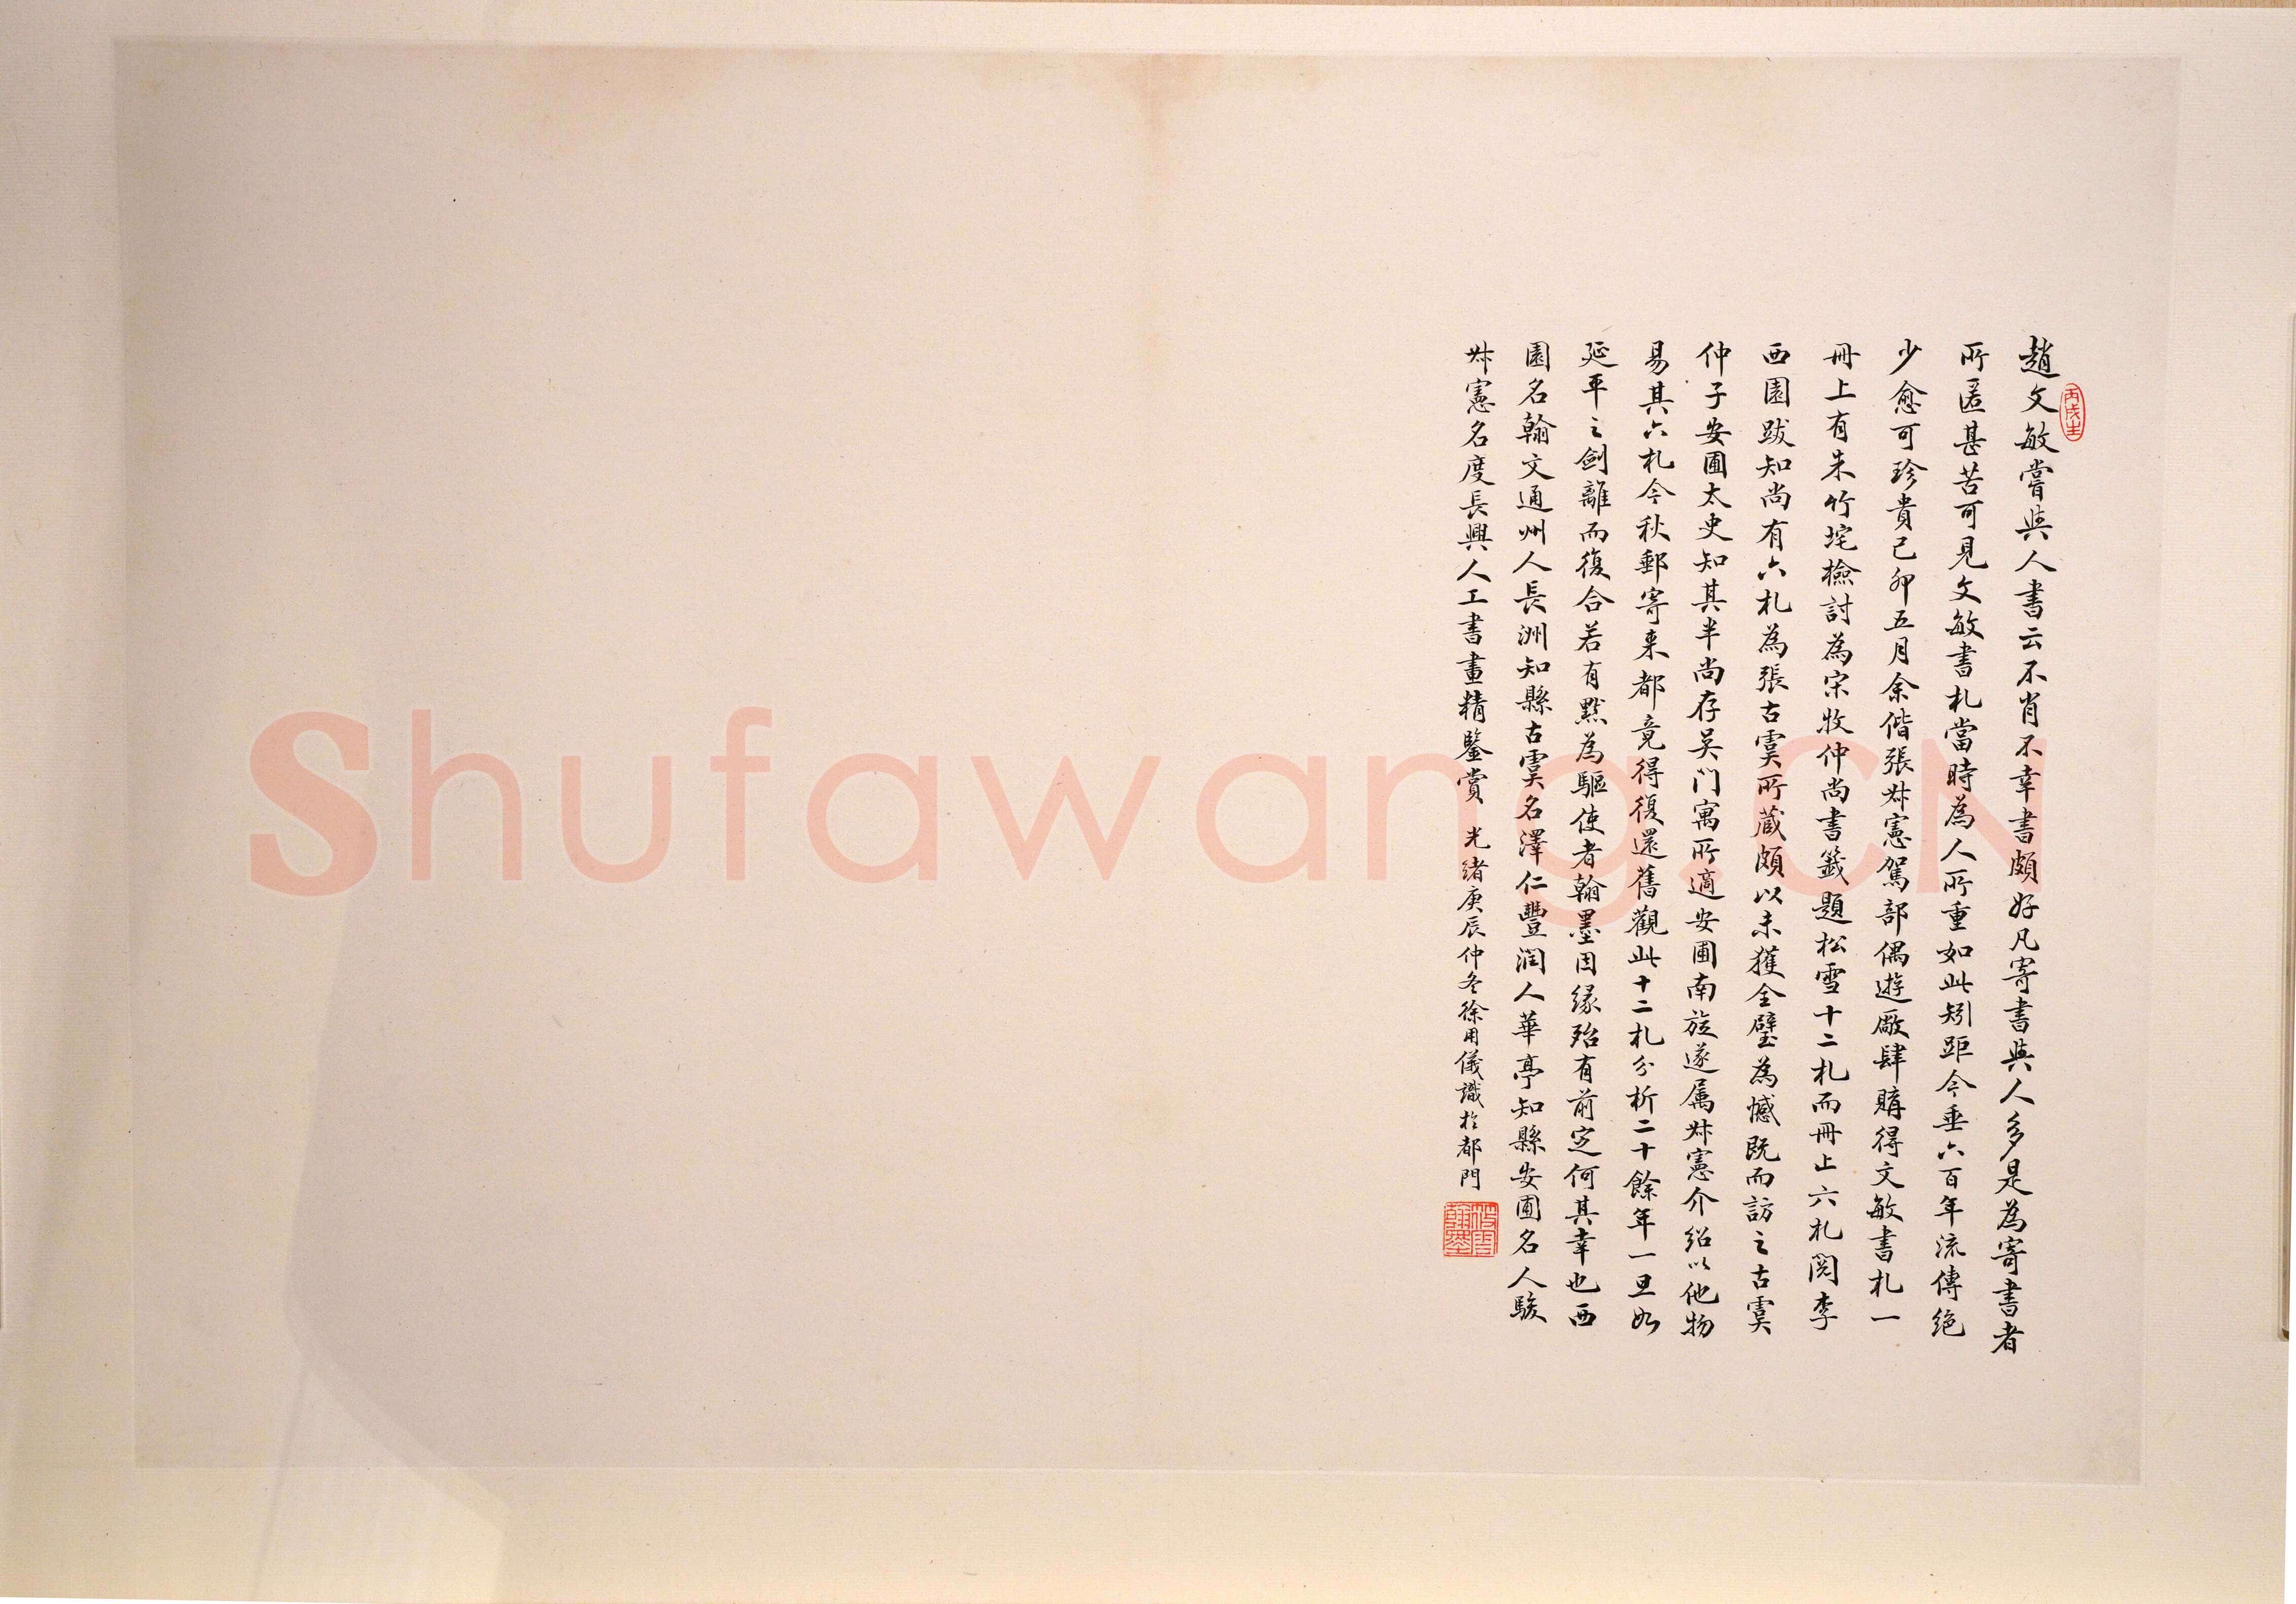 趙文敏嘗與人書云不肖不幸書頗好凡寄書與人多是為寄書者
所匿甚苦可見文敏書札當時為人所重如此矧距今垂六百年流傳絶
少愈可珍貴己卯五月余偕張尗憲駕部偶遊廠肆購得文敏書札一
冊上有朱竹垞檢討為宋牧仲尚書籤題松雪十二札而冊止六札閱李
西園跋知尚有六札為張古虞所蔵頗以未獲全璧為憾既而訪之古虞
仲子安圃太史知其半尚存吳門寓所適安圃南旋遂属尗憲介紹以他物
易其六札今秋郵寄来都竟得復還舊觀此十二札分析二十餘年一旦如
延平之劍離而復合若有黙為驅使者翰墨因緣殆有前定何其幸也西
園名翰文通州人長洲知縣古虞名澤仁豐潤人華亭知縣安圃名人駿
尗憲名度長興人工書畫精鑒賞 光緒庚辰仲冬徐用儀識於都門
丙戌生
筱雲翰墨
Shufawang.CN